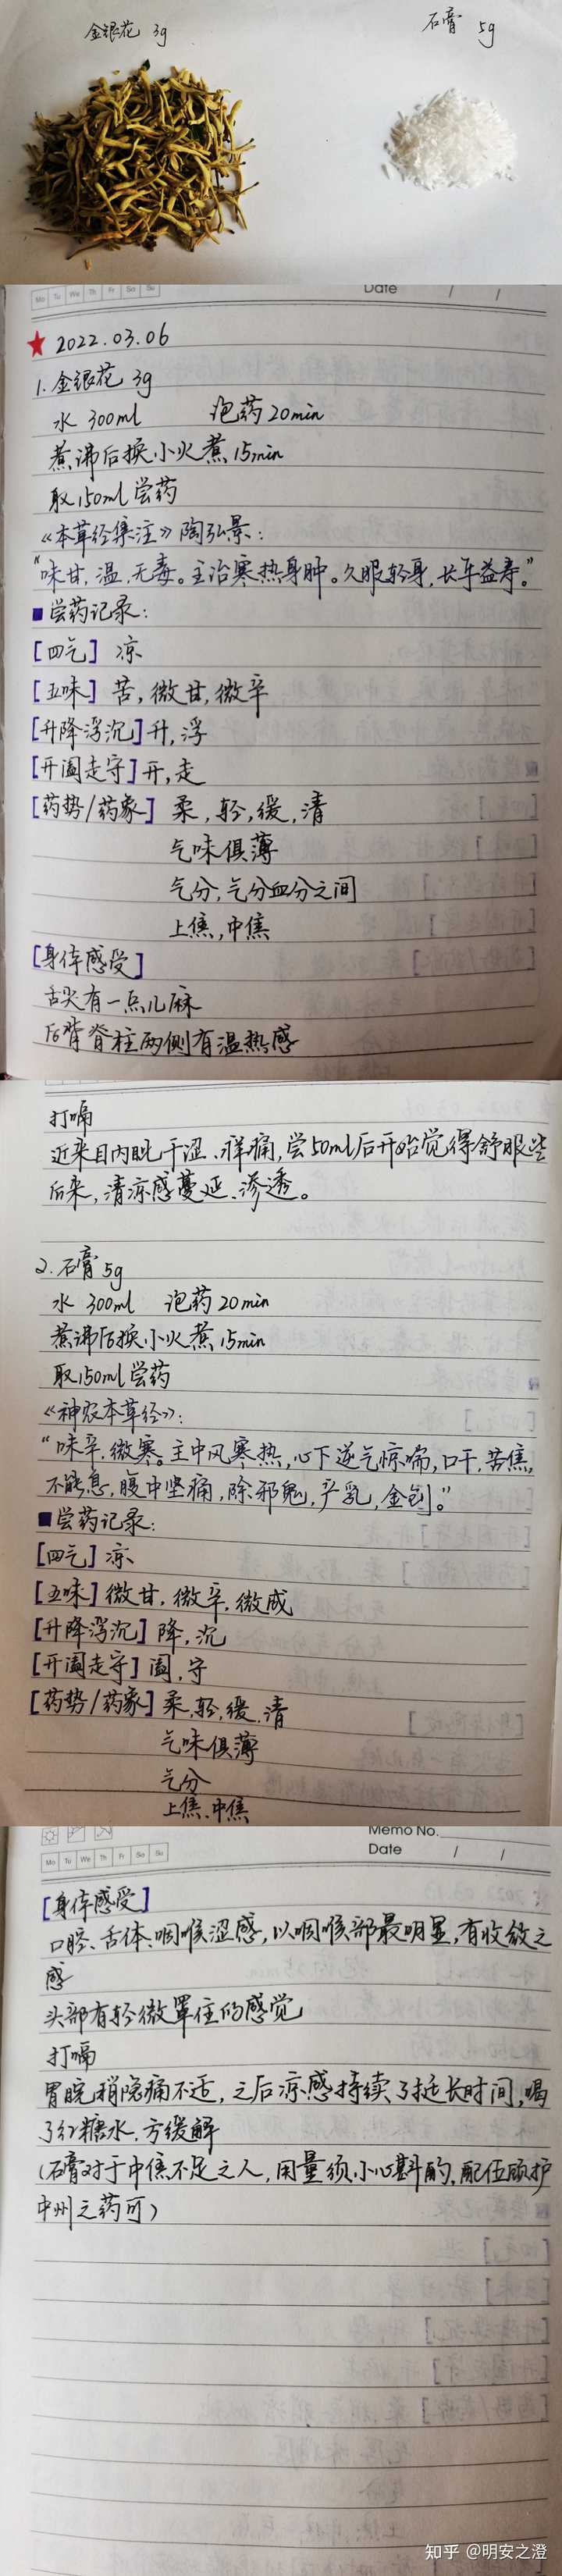 金银花 3g
石膏 5g
Mo Tu We Th Fr Sa Su
Date / /
★ 2022.03.06
1. 金银花 3g
水 300ml 泡药20min
煮沸后换小火煮15min
取150ml尝药
《本草经集注》陶弘景：
“味甘，温，无毒。主治寒热身肿。久服轻身，长年益寿。”
■尝药记录：
[四气] 凉
[五味] 苦，微甘，微辛
[升降浮沉]升，浮
[开阖走守]开，走
[药势/药象] 柔，轻，缓，清
气味俱薄
气分，气分血分之间
上焦，中焦
[身体感受]
舌尖有一点儿麻
后背脊柱两侧有温热感
打嗝
近来目内眦干涩、痒痛，尝50ml后开始觉得舒服些
后来，清凉感蔓延、渗透。
2. 石膏 5g
水 300ml 泡药20min
煮沸后换小火煮15min
取150ml尝药
《神农本草经》：
“味辛，微寒。主中风寒热，心下逆气惊喘，口干，苦焦，
不能息，腹中坚痛，除邪鬼，产乳，金创。”
■尝药记录：
[四气] 凉
[五味] 微甘，微辛，微咸
[升降浮沉] 降，沉
[开阖走守] 阖，守
[药势/药象] 柔，轻，缓，清
气味俱薄
气分
上焦、中焦
Memo No.
Mo Tu We Th Fr Sa Su
Date / /
[身体感受]
口腔、舌体、咽喉涩感，以咽喉部最明显，有收敛之
感
头部有轻微罩住的感觉
打嗝
胃脘稍隐痛不适，之后凉感持续了挺长时间，喝
了红糖水，方缓解
（石膏对于中焦不足之人，用量须小心斟酌，配伍顾护
中州之药可）
知乎 @明安之澄